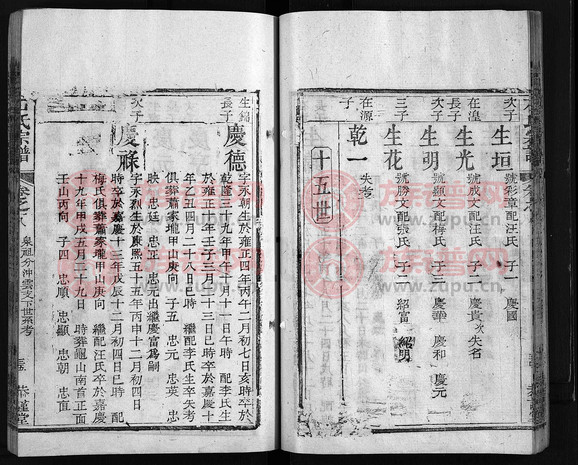 次子
生垣
號彩章配汪氏 子一 慶國
在湟長子
生光
號成文配汪氏 子二 慶貴 次失名
次子
生明
號顯文配梅氏 子三 慶華 慶和 慶元
三子
生花
號勝文配張氏 子二 紹富 紹明
在源子
乾一
失考
十五世
生錦長子
慶德
字永朝生於雍正四年丙午二月初七日亥時卒於
乾隆三十九年甲午十一日午時 配李氏生
於雍正十年壬子三月二十三日巳時卒於嘉慶十
年乙丑四月二十八日巳時 繼配李氏生卒失考
俱葬蕭家壠甲山庚向 子五 忠元 忠英 忠
映 忠廷 忠正 忠元出繼慶富為嗣
次子
慶祿
字永烈生於康熙五十五年丙申十二月初四日
時卒於嘉慶十三年戊辰十二月初四日巳時 配
梅氏俱葬蕭家壠甲山庚向 繼配汪氏卒於嘉慶
十九年甲戌五月二十九日 時葬龜山南首正面
壬山丙向 子四 忠順 忠顯 忠朝 忠面
氏宗譜
卷之八
泉祖分沖雲支下世系考
恭謹堂
族譜网
www.zupu.cn